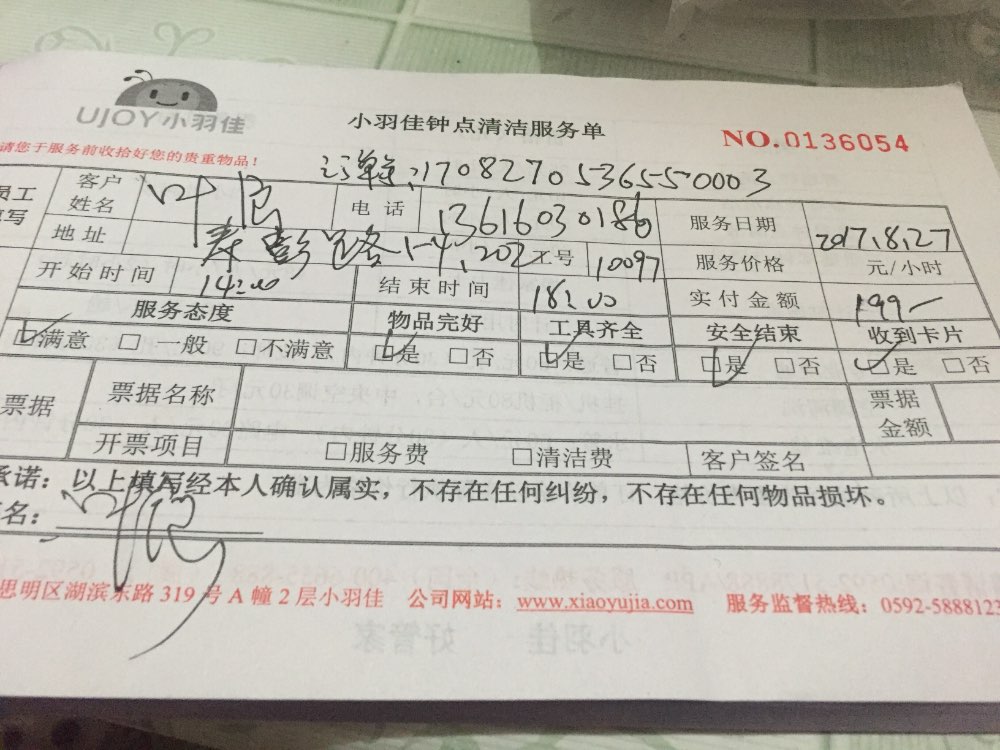 UJOY小羽佳
小羽佳钟点清洁服务单
NO.0136054
请您于服务前收拾好您的贵重物品！
订单号:1708270536550003
员工填写
客户姓名 叶
电话 13616030186
服务日期 2017.8.27
地址 路1-4,202
工号 10097
服务价格 元/小时
开始时间 14:00
结束时间 18:00
实付金额 199-
服务态度 物品完好 工具齐全 安全结束 收到卡片
☑满意 □一般 □不满意 ☑是 □否 ☑是 □否 ☑是 □否 ☑是 □否
票据 票据名称 票据金额
开票项目 □服务费 □清洁费 客户签名
承诺：以上填写经本人确认属实，不存在任何纠纷，不存在任何物品损坏。
名：叶
思明区湖滨东路 319 号 A 幢 2 层小羽佳 公司网站：www.xiaoyujia.com 服务监督热线：0592-5888123